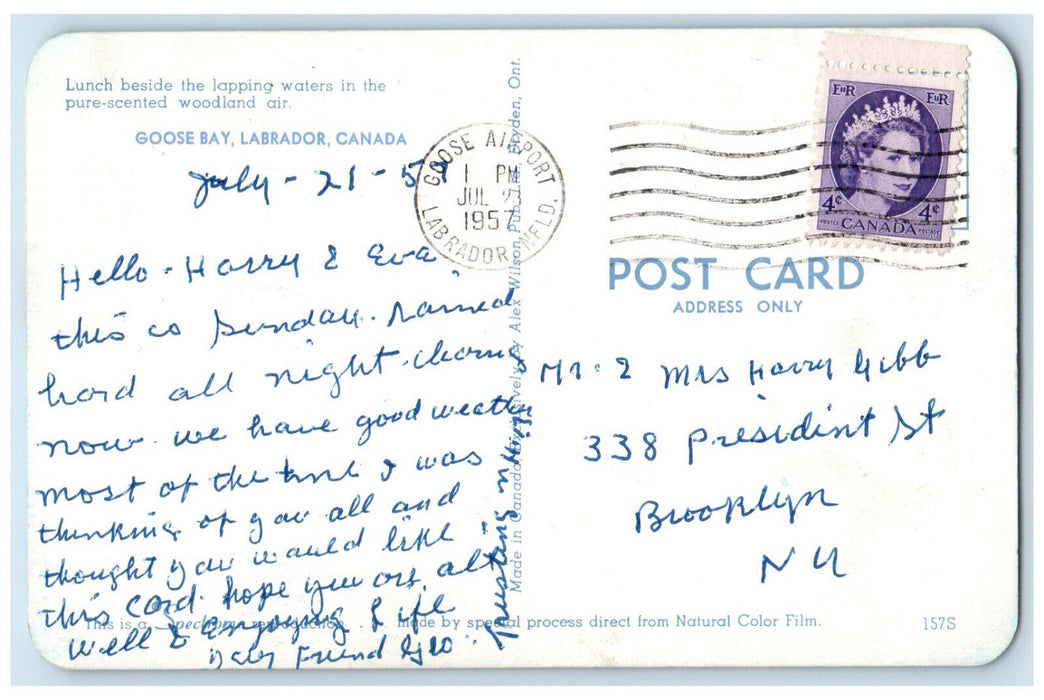 Lunch beside the lapping waters in the
pure-scented woodland air.
GOOSE BAY, LABRADOR, CANADA
July - 21 - 57
Hello - Harry & Eva,
this is Sunday. rained
hard all night. clearing
now. we have good weather
most of the time I was
thinking of you all and
thought you would like
this card. hope you are all
well & Enjoying Life
your Friend Geo
Trusting in Him
GOOSE AIRPORT
1 PM
JUL 23
1957
LABRADOR, NFLD.
Made in Canada Exclusively by Alex Wilson Dryden, Ont.
EIIR EIIR
4¢ 4¢
POSTES CANADA POSTAGE
POST CARD
ADDRESS ONLY
Mr. & Mrs Harry Gibb
338 Presidint St
Brooklyn
NY
This is a Spectrome reproduction made by special process direct from Natural Color Film.
157S